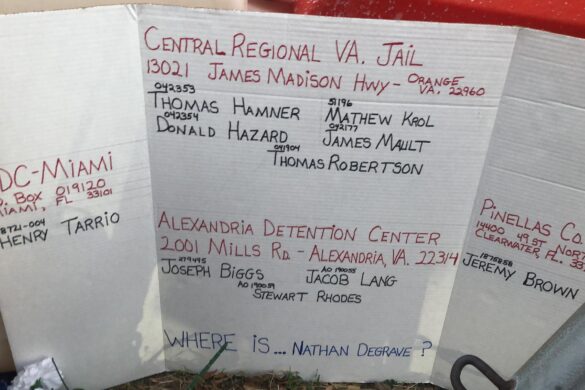 DC-MIAMI
BOX 019120
MIAMI, FL 33101
8721-004
HENRY TARRIO
CENTRAL REGIONAL VA. JAIL
13021 JAMES MADISON HWY- ORANGE
VA. 22960
042353
THOMAS HAMNER
51196
MATHEW KROL
042354
DONALD HAZARD
042177
JAMES MAULT
041904
THOMAS ROBERTSON
ALEXANDRIA DETENTION CENTER
2001 MILLS RD - ALEXANDRIA, VA. 22314
279495
JOSEPH BIGGS
AO 190055
JACOB LANG
AO 190059
STEWART RHODES
WHERE IS... NATHAN DEGRAVE ?
PINELLAS CO
14400 49 ST NORT
CLEARWATER, FL. 33
1875858
JEREMY BROWN